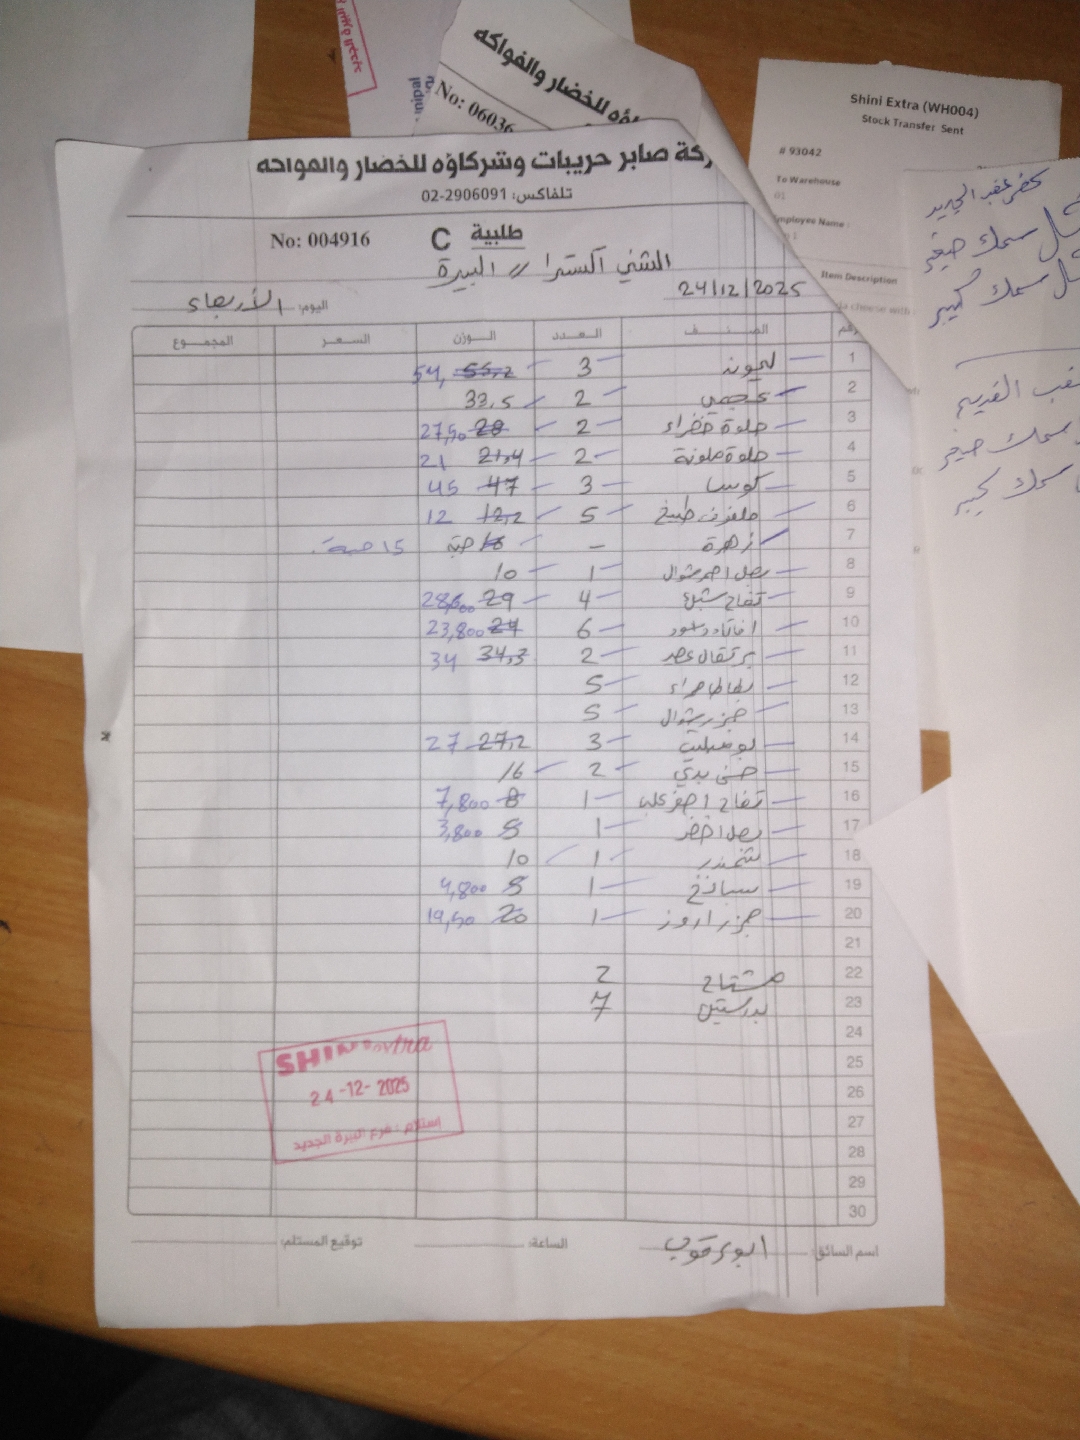 No: 06036
ؤه للخضار والفواكه
Shini Extra (WH004)
Stock Transfer Sent
# 93042
To Warehouse
01
mployee Name :
Item Description
كة صابر حريبات وشركاؤه للخضار والفواكه
تلفاكس: 02-2906091
طلبية C
No: 004916
الشني اكسترا // البيرة
24/12/2025
اليوم: الأربعاء
رقم الصنف العدد الوزن السعر المجموع
1 ليمونة 3 55,2 54,
2 عجمي 2 33,5
3 حلوة خضراء 2 28 27,50
4 حلوة ملونة 2 21,4 21
5 كوسا 3 47 45
6 ملفوف طبيخ 5 12,2 12
7 زهرة - 16 حبة 15 حبة
8 بصل احمر شوال 1 10
9 تفاح 4 29 28,600
10 6 24 23,800
11 برتقال عصر 2 34,3 34
12 5
13 جزر شوال 5
14 بوملي 3 27,2 27
15 2 16
16 تفاح اصفر 1 8 7,800
17 بصل اخضر 1 5 3,800
18 شمندر 1 10
19 سبانخ 1 5 4,800
20 1 20 19,50
21
22 مشتاح 2
23 7
24
25
26
27
28
29
30
SHINI extra
24-12-2025
إستلام : فرع البيرة الجديد
اسم السائق: الساعة: توقيع المستلم:
سمك صغير
سمك كبير
القديم
سمك صغير
سمك كبير